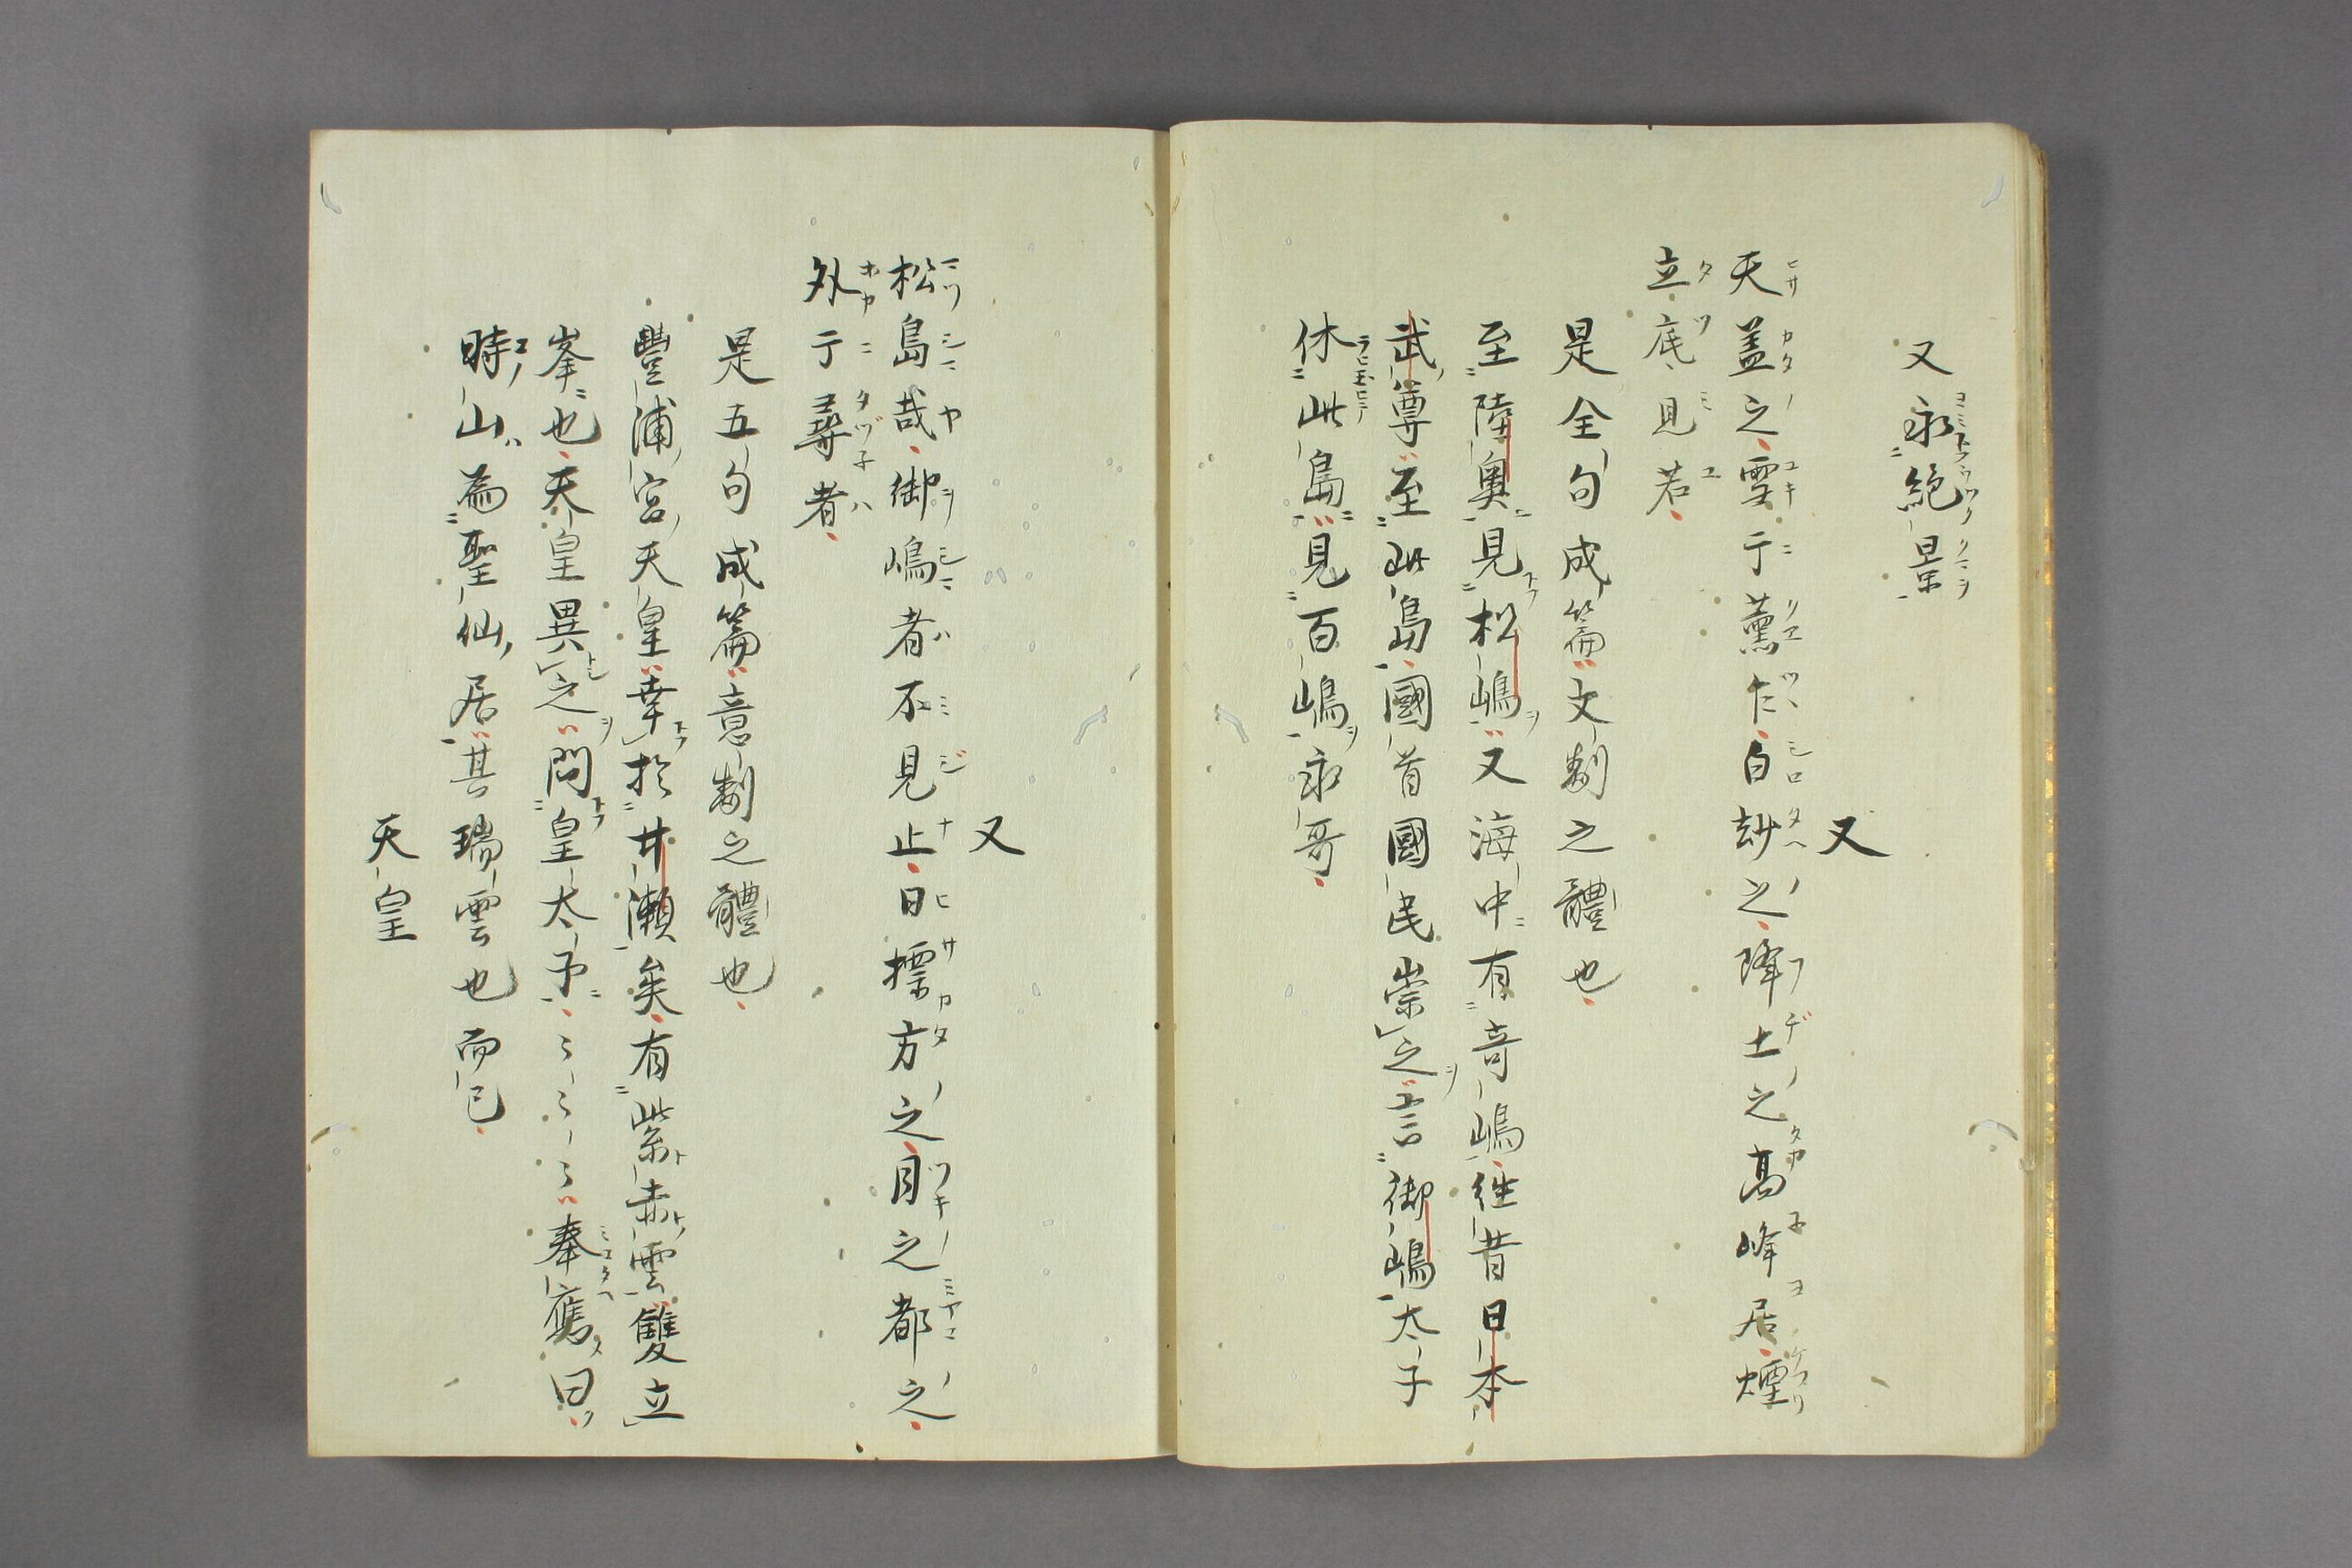 又永絶景
又
天盖之雪于薫乍白玅之降土之髙峰居煙
立底見若
是全句成篇文制之體也
至陸奥見松嶋又海中有竒嶋徃昔日本
武尊至此島國首國民崇之言御嶋太子
休此島見百嶋永哥
又
松島哉御嶋者不見止日摽方之月之都之
外于尋者
是五句成篇意制之體也
豐浦宮天皇幸於廿瀬矣有紫赤雲雙立
峯也天皇異之問皇太子〻〻〻奉奮曰
時山為聖仙居其瑞雲也而已
天皇